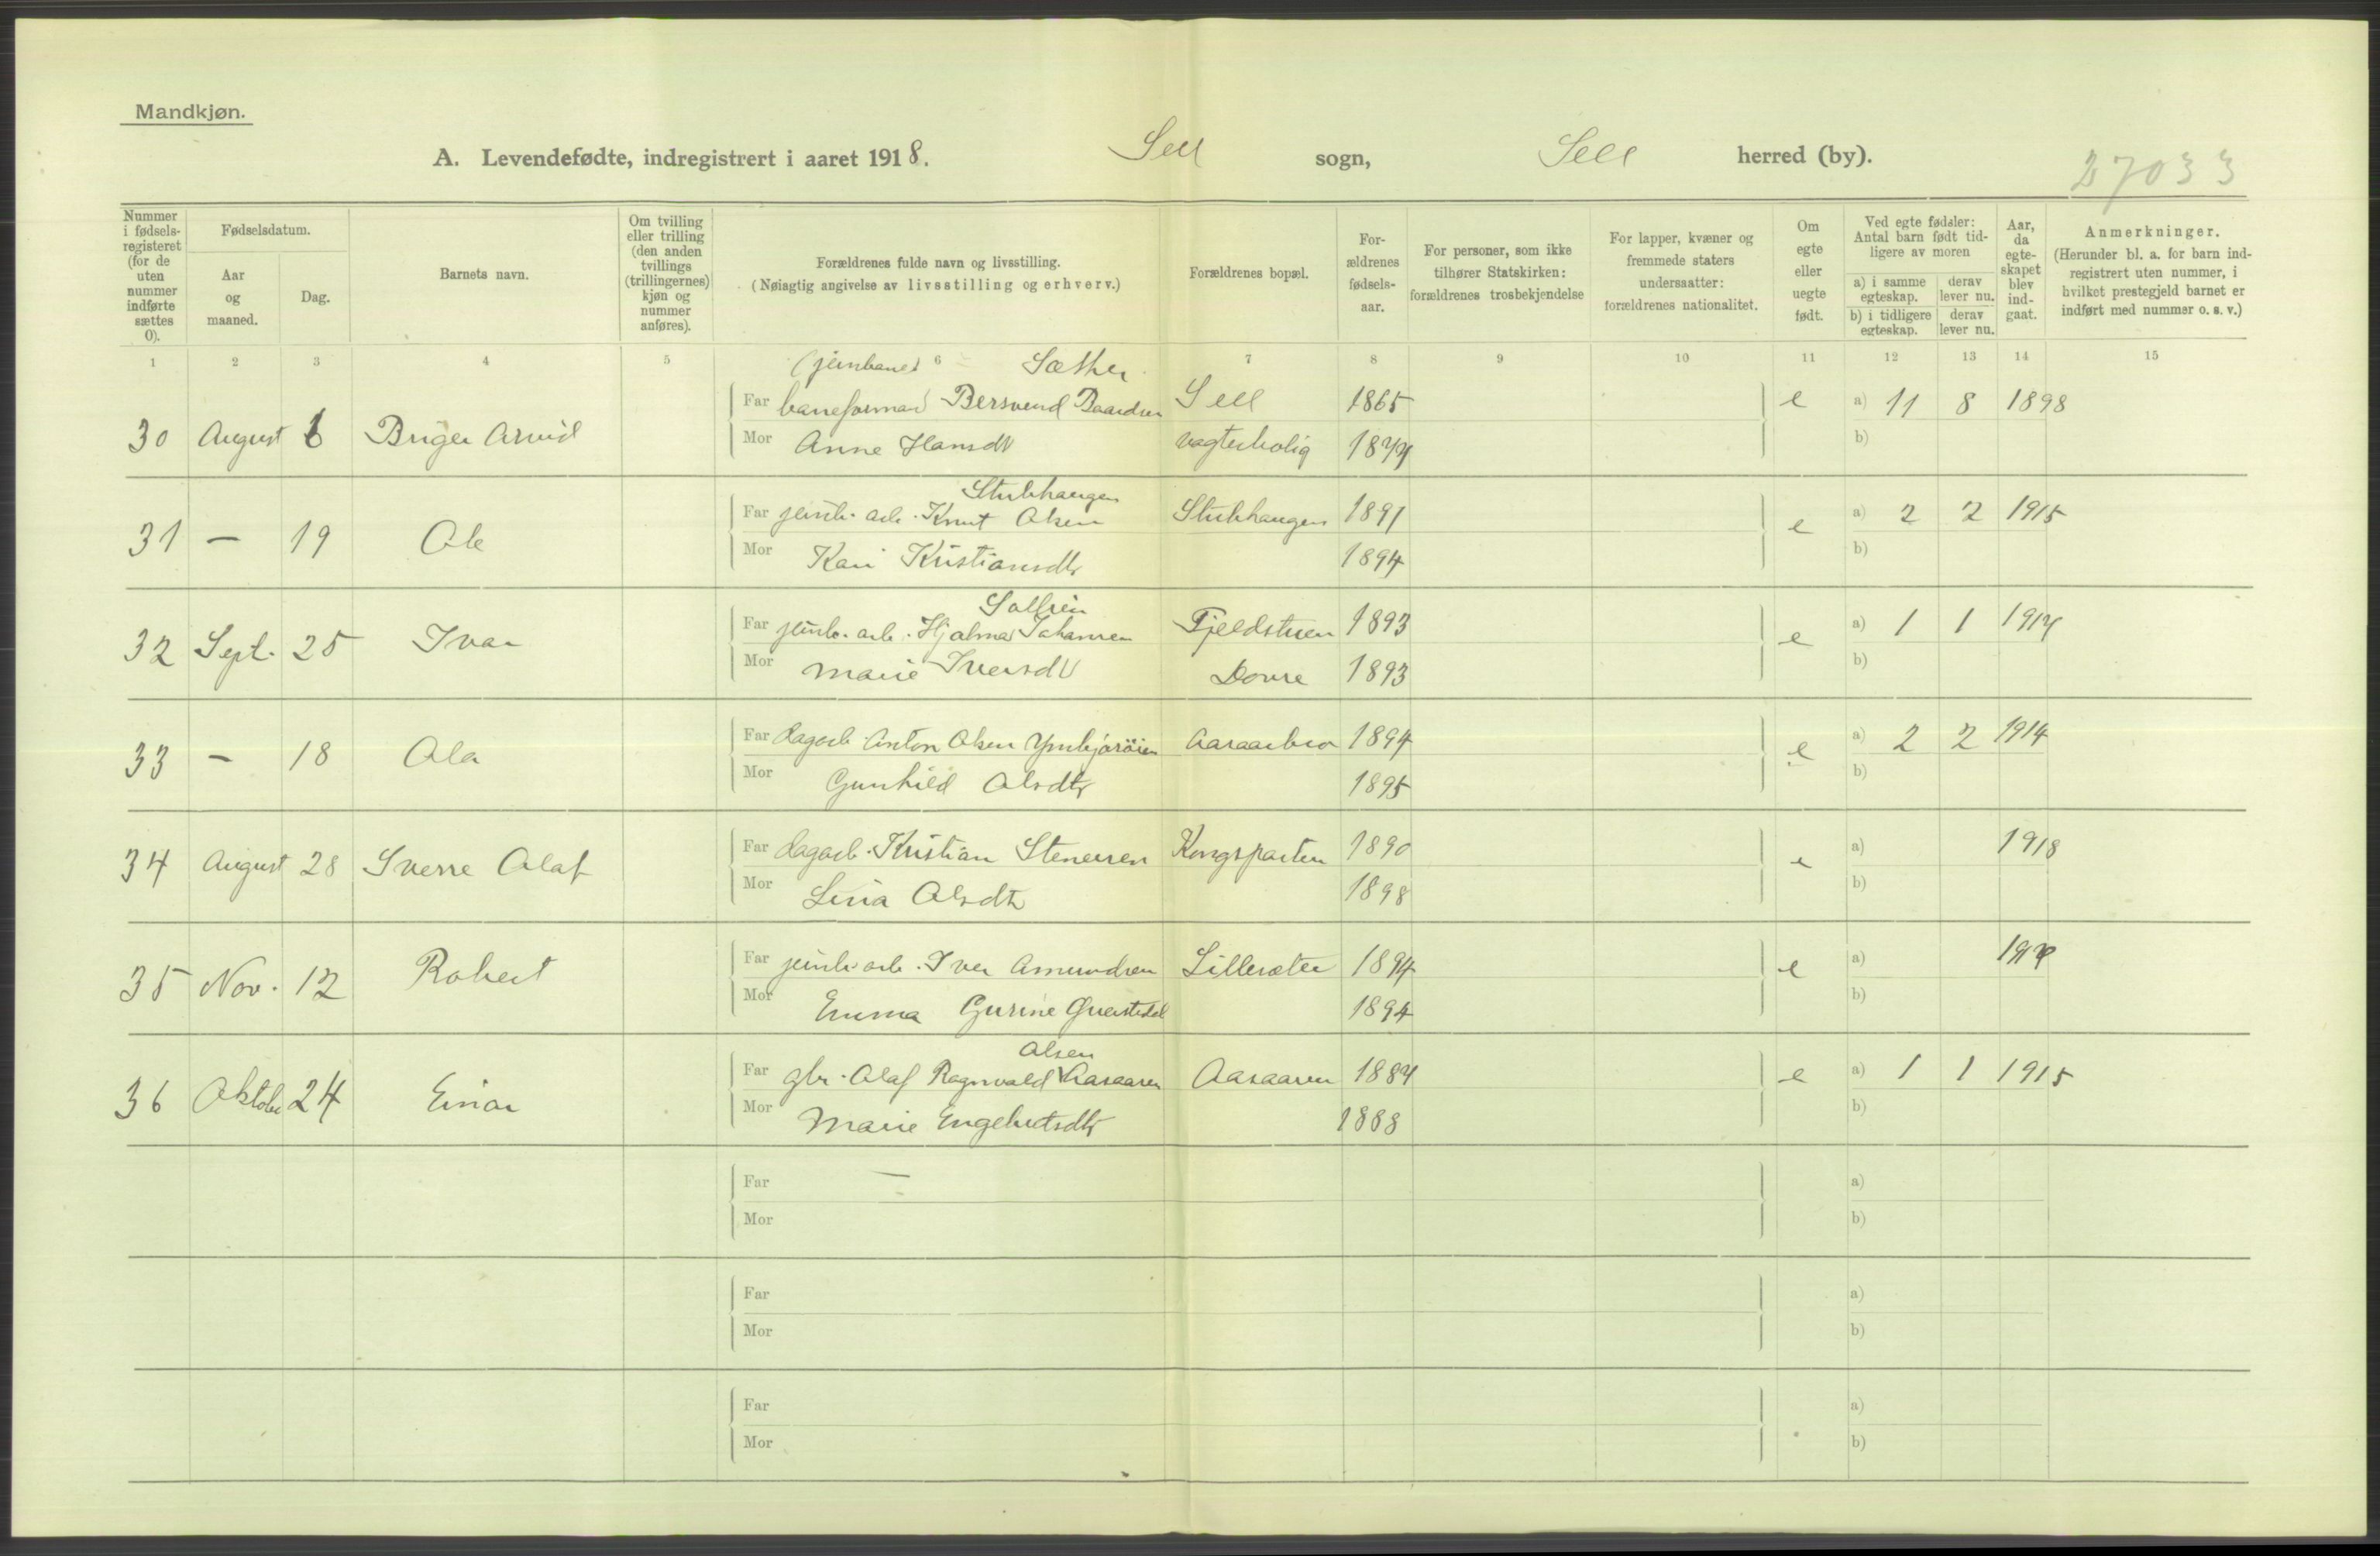 Mandkjøn.
A. Levendefødte, indregistrert i aaret 1918. Sell sogn, Sell herred (by). 27033
Nummer i fødsels-registeret (for de uten nummer indførte sættes 0).
Fødselsdatum.
Aar og maaned.
Dag.
Barnets navn.
Om tvilling eller trilling (den anden tvillings (trillingernes) kjøn og nummer anføres).
Forældrenes fulde navn og livsstilling.
(Nøiagtig angivelse av livsstilling og erhverv.)
Forældrenes bopæl.
For-ældrenes fødsels-aar.
For personer, som ikke tilhører Statskirken: forældrenes trosbekjendelse
For lapper, kvæner og fremmede staters undersaatter: forældrenes nationalitet.
Om egte eller uegte født.
Ved egte fødsler: Antal barn født tid-ligere av moren
a) i samme egteskap. derav lever nu.
b) i tidligere egteskap. derav lever nu.
Aar, da egte-skapet blev ind-gaat.
Anmerkninger.
(Herunder bl. a. for barn ind-registrert uten nummer, i hvilket prestegjeld barnet er indført med nummer o. s. v.)
1 2 3 4 5 6 7 8 9 10 11 12 13 14 15
(jernbane) Sæther
Far baneformand Bersvend Baardsen Sell 1865 e a) 11 8 1898
30 August 6 Birger Arvid
Mor Anne Hansdtr vagterbolig b)
Stubhaugen
Far jernb. arb. Knut Olsen Stubhaugen 1891 e a) 2 2 1915
31 — 19 Ole
Mor Kari Kristiansdtr 1894 b)
Solhein
Far jernb. arb. Hjalmar Johansen Fjeldstuen 1893 e a) 1 1 1914
32 Sept. 25 Ivar
Mor Marie Iversdtr Dovre 1893 b)
Far dagarb. Anton Olsen Aasaarbra 1894 e a) 2 2 1914
33 — 18 Ola
Mor Gunhild Olsdtr 1895 b)
Far dagarb. Kristian Stenersen Kongsparten 1890 e a) 1918
34 August 28 Sverre Olaf
Mor Lina Olsdtr 1898 b)
Far jernb. arb. Iver Amundsen Lillesæter 1894 e a)
35 Nov. 12 Robert
Mor Emma Gurine b) 1894
Olsen
Far gbr. Olaf Ragnvald Aasaaren Aasaaren 1884 e a) 1 1 1915
36 Oktober 24 Einar
Mor Marie Engebretsdtr 1888 b)
Far — a)
Mor b)
Far a)
Mor b)
Far a)
Mor b)